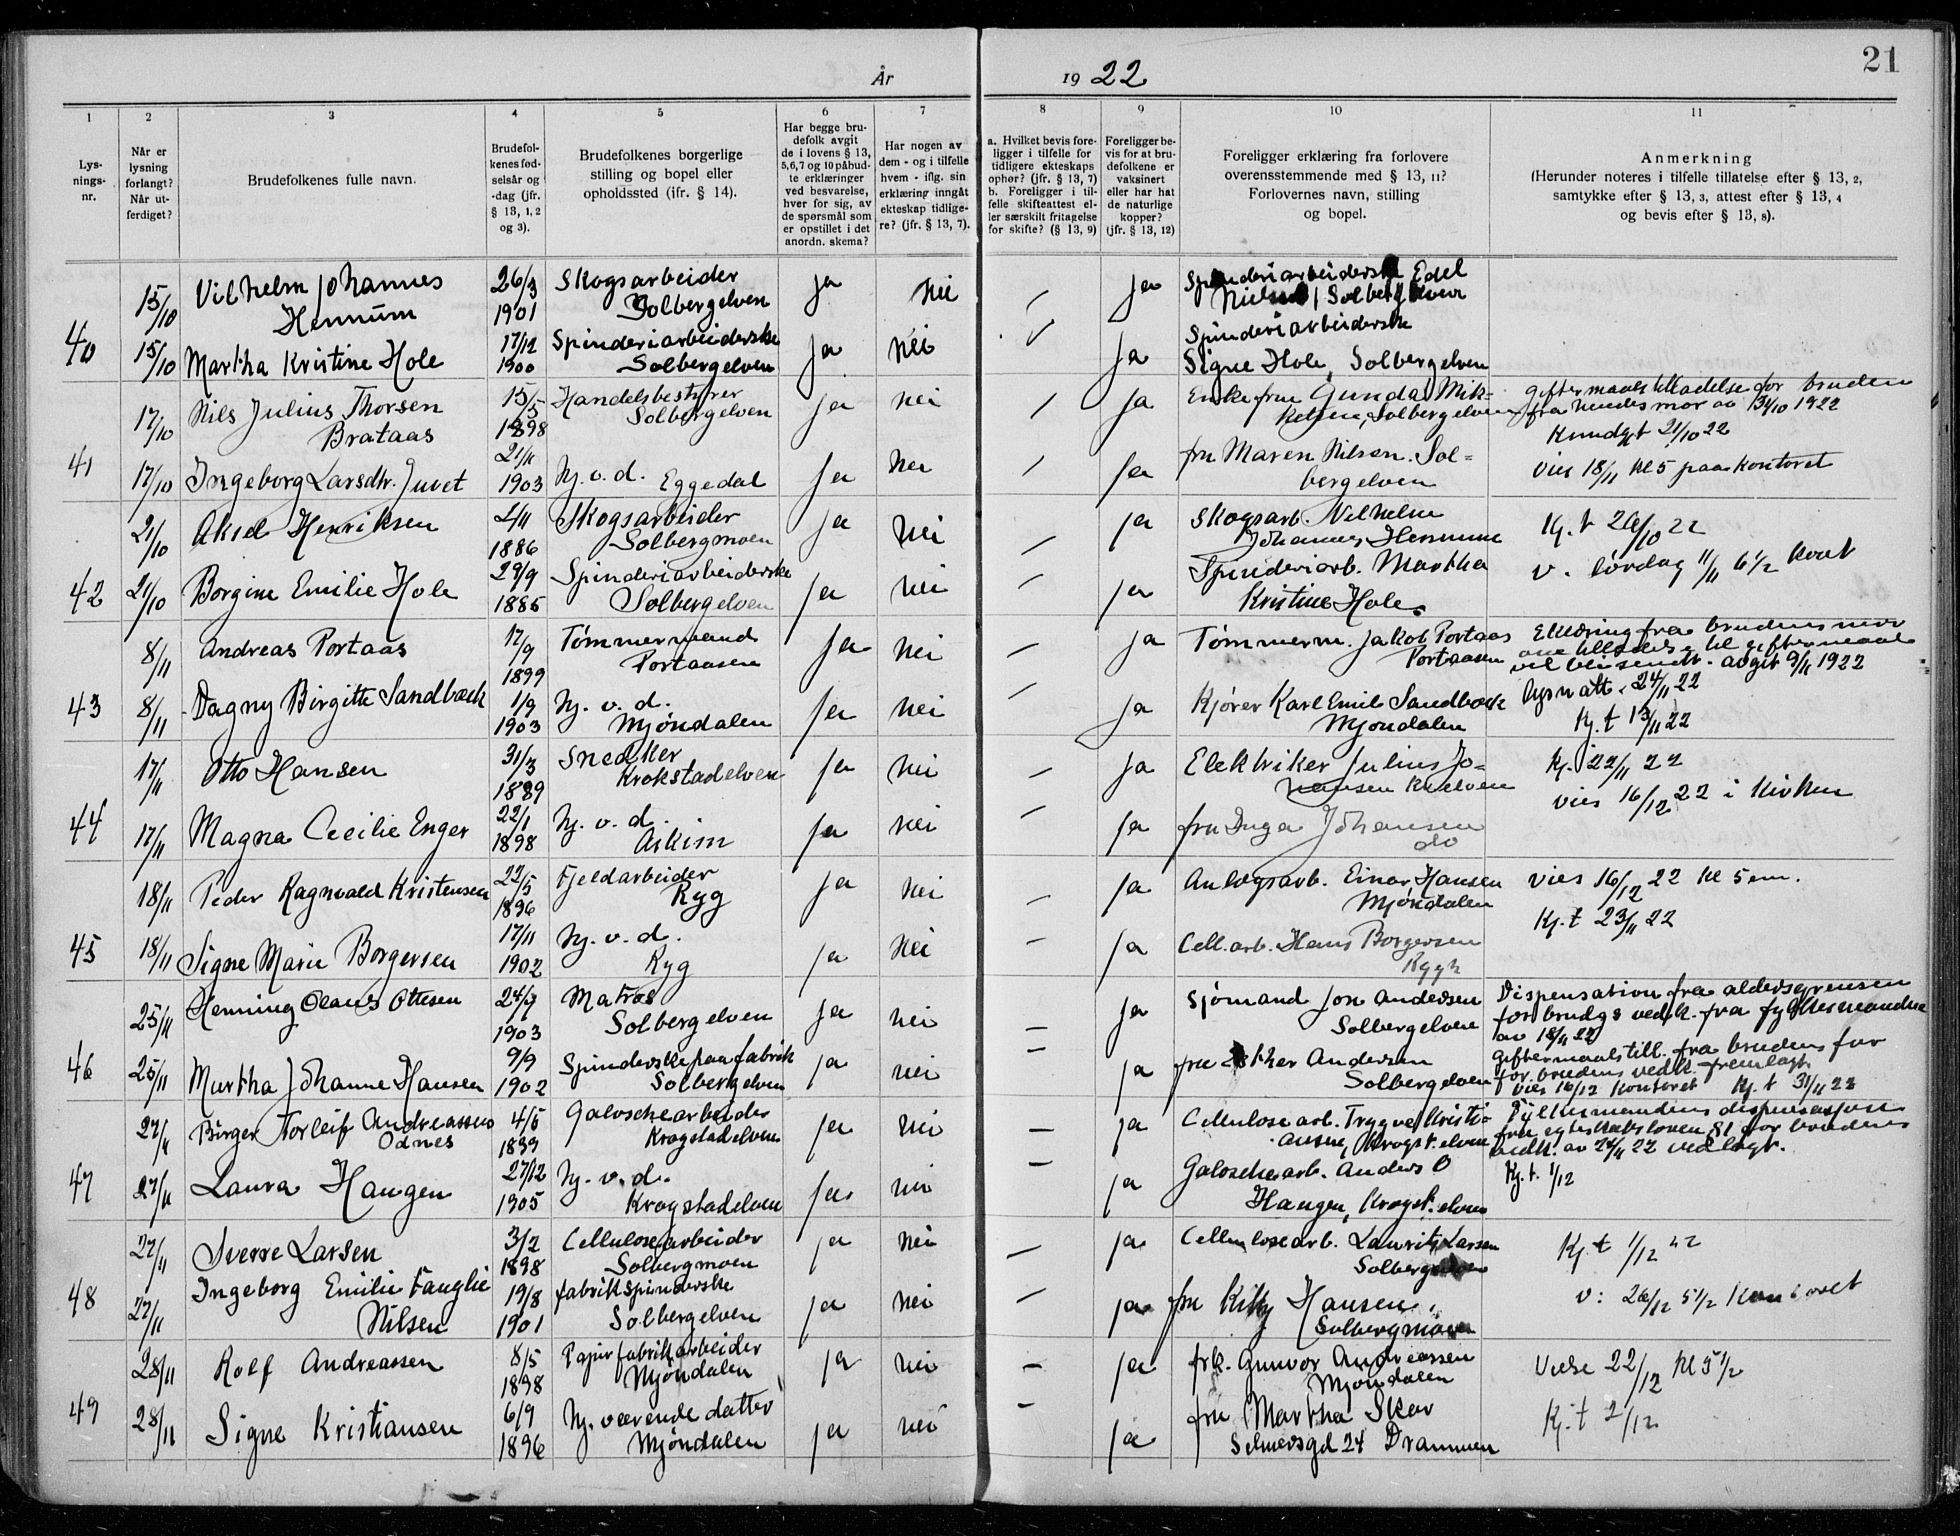 21
År 1922
1 2 3 4 5 6 7 8 9 10 11
Lys-
nings-
nr.
Når er
lysning
forlangt?
Når ut-
ferdiget?
Brudefolkenes fulle navn.
Brudefol-
kenes fød-
selsår og
-dag (jfr.
§ 13, 1, 2
og 3).
Brudefolkenes borgerlige
stilling og bopel eller
opholdssted (jfr. § 14).
Har begge bru-
defolk avgit
de i lovens § 13,
5,6,7 og 10 påbud-
te erklæringer
ved besvarelse,
hver for sig, av
de spørsmål som
er opstillet i det
anordn. skema?
Har nogen av
dem - og i tilfelle
hvem - iflg. sin
erklæring inngått
ekteskap tidlige-
re? (jfr. § 13, 7).
a. Hvilket bevis fore-
ligger i tilfelle for
tidligere ekteskaps
ophør? (jfr. § 13, 7)
b. Foreligger i til-
felle skifteattest el-
ler særskilt fritagelse
for skifte? (§ 13, 9)
Foreligger be-
vis for at bru-
defolkene er
vaksinert
eller har hat
de naturlige
kopper?
(jfr. § 13, 12)
Foreligger erklæring fra forlovere
overensstemmende med § 13, 11?
Forlovernes navn, stilling
og bopel.
Anmerkning
(Herunder noteres i tilfelle tillatelse efter § 13, 2,
samtykke efter § 13, 3, attest efter § 13, 4
og bevis efter § 13, 8).
40
15/10 Vilhelm Johannes Hennum 26/3 1901 Skogsarbeider Solbergelven ja nei / ja Spinderiarbeiderske Edel Solbergelven
15/10 Martha Kristine Hole 17/12 1900 Spinderiarbeiderske Solbergelven ja nei ja Spinderiarbeiderske Signe Hole, Solbergelven
41
17/10 Nils Julius Thorsen Brataas 15/5 1898 Handelsbestyrer Solbergelven ja nei / ja Enkefrue Gunda Mik-kelsen, Solbergelven
giftermaalstilladelse for bruden
fra hendes mor av 13/10 1922
Kundgjt 21/10 22
17/10 Ingeborg Larsdtr. Juvet 21/11 1903 hj. v. d. Eggedal ja nei / ja fru Maren Nilsen. Sol=bergelven
vies 18/11 kl 5 paa kontoret
42
21/10 Aksel Henriksen 2/11 1886 Skogsarbeider Solbergmoen ja nei / ja Skogsarb. Vilhelm Johannes Hennum
Kj. t 26/10 22
21/10 Borgine Emilie Hole 29/9 1885 Spinderiarbeiderske Solbergelven ja nei / ja Spinderiarb. Martha Kristine Hole.
v. lørdag 11/11 6 1/2
43
8/11 Andreas Portaas 17/9 1899 Tømmermand Portaasen ja nei / ja Tømmerm. Jakob Portaas Portaasen
Eklæring fra brudens mor
om tilladelse til giftermaal
vil bli sendt. avgit 9/11 1922
8/11 Dagny Birgitte Sandbæck 1/9 1903 hj. v. d. Mjøndalen ja nei / ja Kjører Karl Emil Sandbæck Mjøndalen
lysn att. 24/11 22
Kj. t 13/11 22
44
17/11 Otto Hansen 31/3 1889 Snedker Krokstadelven ja nei / ja Elektriker Julius Jo-hansen
Kj. 22/11 22
vies 16/12 22 i kirken
17/11 Magna Cecilie Enger 22/1 1898 hj. v. d. Askim ja nei / ja fru Inga Johansen do
45
18/11 Peder Ragnvald Kristensen 22/5 1896 Fjeldarbeider Ryg ja nei / ja Anlægsarb. Einar Hansen Mjøndalen
vies 16/12 22 kl 5 em.
Kj. t 23/11 22
18/11 Signe Marie Borgersen 17/11 1902 hj. v. d. Ryg ja nei / ja Cell. arb. Hans Borgersen Rygh
46
25/11 Henning Olaus Ottesen 24/7 1903 Matros Solbergelven ja nei / ja Sjømand Jon Andersen Solbergelven
Dispensation fra aldersgrensen
for brudgs vedk. fra fylkesmanden
av 18/11 22
25/11 Martha Johanne Hansen 9/9 1902 Spinderske paa fabrik Solbergelven ja nei / ja frue Esther Andersen Solbergelven
giftermaalstill. fra brudens far
for brudens vedk. fremlagt.
vies 16/12 kontoret Kj. t
47
27/11 Birger Torleif Andreassen Odnes 4/5 1899 Galoschearbeider Krogstadelven ja nei / ja Cellulosearb. Trygve Kristi-ansen, Krogst. elven
Fylkesmandens dispensasjon
fra egteskabsloven §1 for brudens
vedk. av 24/11 22 vedlagt.
27/11 Laura Haugen 27/12 1905 hj. v. d. Krogstadelven ja nei / ja Galoschearb. Anders O Haugen, Krogst. elven
Kj. t. 1/12
48
27/11 Sverre Larsen 3/2 1898 Cellulosearbeider Solbergmoen ja nei / ja Cellulosearb. Laurits Larsen
Kj. t 1/12 22
27/11 Ingeborg Emilie Fauglie Nilsen 19/8 1901 fabrikspinderske Solbergelven ja nei / ja fru Kitty Hansen, Solbergmoen
v: 26/12 5 1/2 Kontoret
49
28/11 Rolf Andreassen 8/5 1898 Papirfabrikarbeider Mjøndalen ja nei / ja frk. Gunvor Andreassen Mjøndalen
Vielse 22/12 kl 5 1/2
28/11 Signe Kristiansen 6/9 1896 hj. værende datter Mjøndalen ja nei / ja fru Martha Skar Selmersgd 24 Drammen
Kj. t 2/12